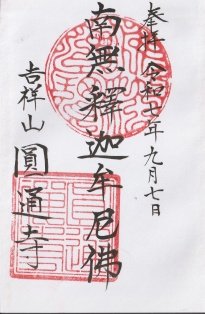 奉拝 令和七年 九月七日
南無釋迦牟尼佛
吉祥山 圓通寺